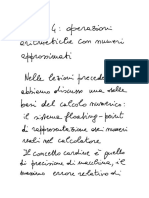 4: operazioni
aritmetiche con numeri
approssimati
Nelle lezioni precede
abbiamo discusso una delle
basi del calcolo numerico:
il sistema floating-point
di rappresentazione dei numeri
reali nel calcolatore
Il concetto cardine è quello
di precisione di macchina, il
massimo errore relativo di